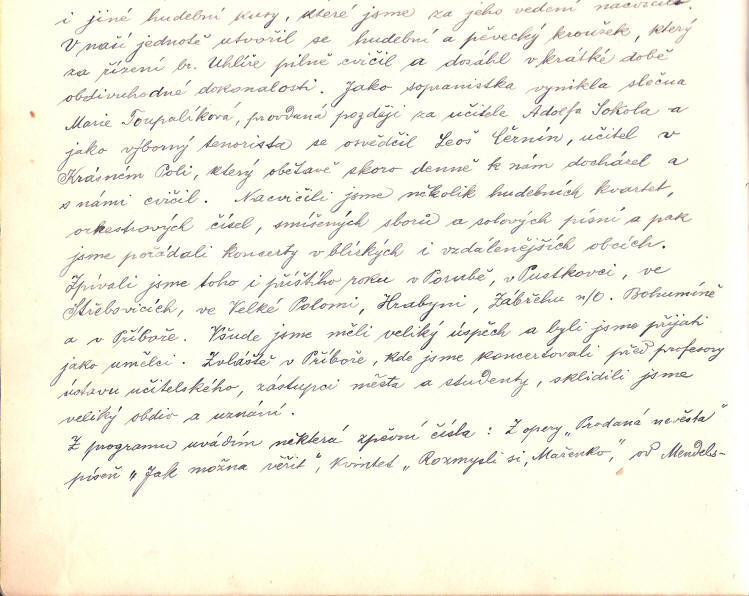 i jiné hudební kusy, které jsme za jeho vedení nacvičili.
V naší jednotě utvořil se hudební a pěvecký kroužek, který
za řízení br. Uhlíře pilně cvičil a dosáhl v krátké době
obdivuhodné dokonalosti. Jako sopranistka vynikla slečna
Marie Toupalíková, provdaná později za učitele Adolfa Sokola a
jako výborný tenorista se osvědčil Leoš Černín, učitel v
Krásném Poli, který obětavě skoro denně k nám docházel a
s námi cvičil. Nacvičili jsme několik hudebních kvartet,
orkestrových čísel, smíšených sborů a solových písní a pak
jsme pořádali koncerty v blízkých i vzdálenějších obcích.
Zpívali jsme toho i příštího roku v Porubě, v Pustkovci, ve
Střebovicích, ve Velké Polomi, Hrabyni, Zábřehu n/O. Bohumíně
a v Příboře. Všude jsme měli veliký úspěch a byli jsme přijati
jako umělci. Zvláště v Příboře, kde jsme koncertovali před profesory
ústavu učitelského, zástupci města a studenty, sklidili jsme
veliký obdiv a uznání.
Z programu uvádím některá zpěvní čísla: Z opery „Prodaná nevěsta"
píseň „Jak možna věřit", kvintet „Rozmysli si, Mařenko," od Mendels-